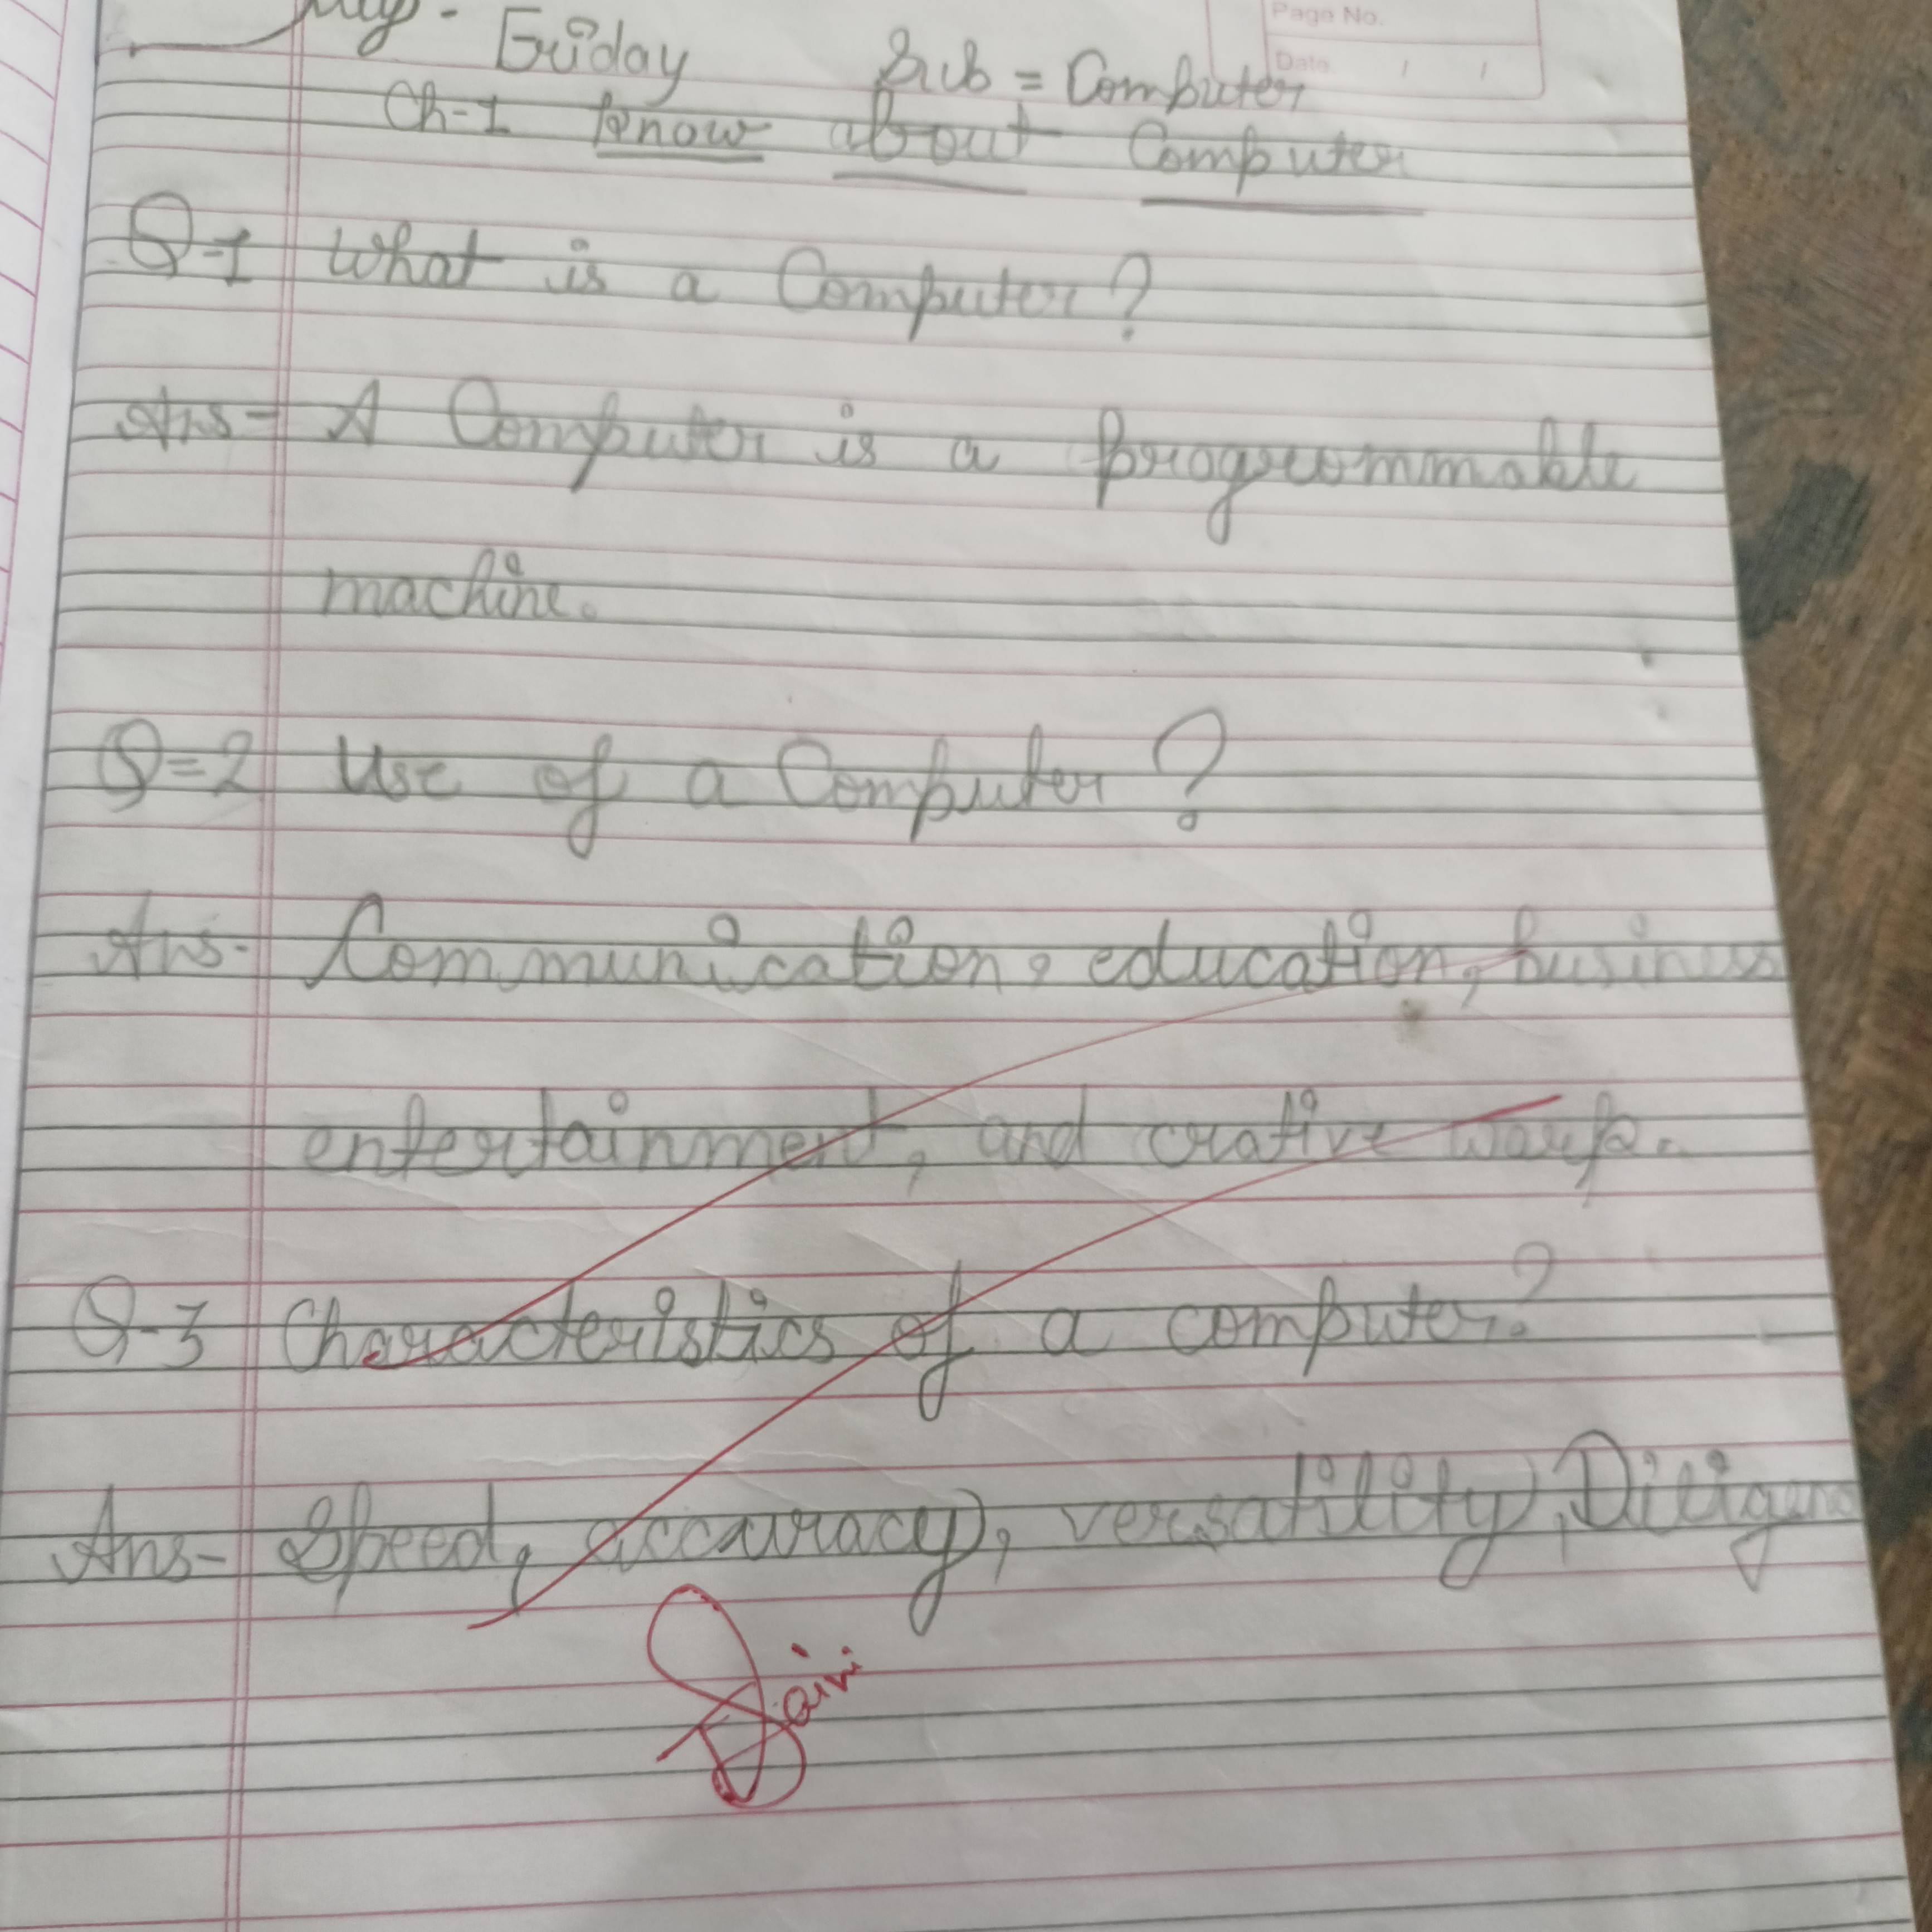 Page No.
Date / /
Friday Sub = Computer
Ch-1 know about Computer
Q-1 What is a Computer?
Ans- A Computer is a programmable
machine.
Q=2 Use of a Computer?
Ans- Communication, education, business
entertainment, and crative work.
Q-3 Characteristics of a computer?
Ans- Speed, accauracy, versatility, Diligenc